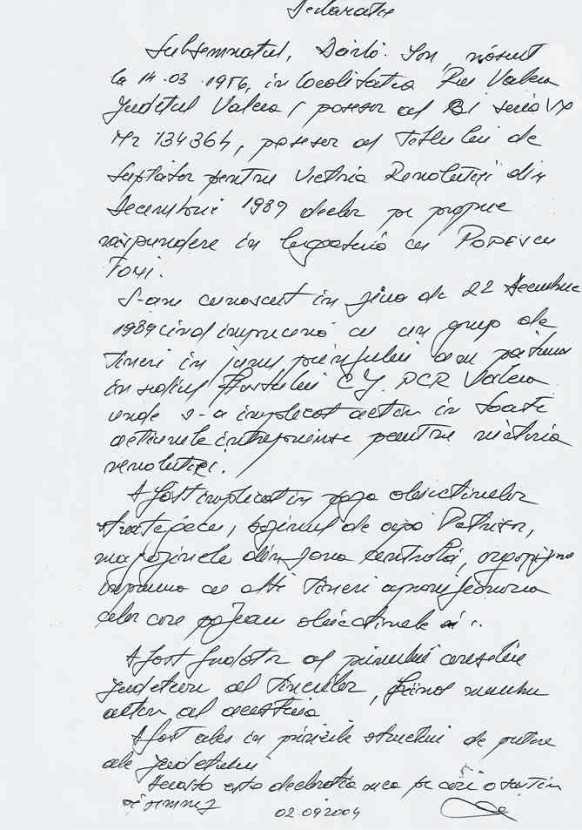 Declaratie
Subsemnatul, Ion, născut
la 14.03.1956, in localitatea Rm Valcea
judetul Valcea, posesor al BI seria VX
Nr 134364, posesor al Titlului de
luptator pentru Victoria Revolutiei din
Decembrie 1989 declar pe propria
raspundere in legatura cu POPESCU
TONI.
L-am cunoscut in ziua de 22 Decembrie
1989 cind impreuna cu un grup de
tineri in jurul prinzului am patruns
in sediul fostului CJ. PCR Valcea
unde s-a implicat activ in toate
actiunile intreprinse pentru victoria
revolutiei.
A fost implicat in paza obiectivelor
strategice, bazinul de apa
magazinele din zona centrala,
impreuna cu alti tineri
celor care pazeau obiectivele
A fost al primului consiliu
judetean al tinerilor, fiind membru
activ al acestuia
A fost ales in primele structuri de putere
ale judetului
Aceasta este declaratia mea pe care o sustin
si semnez
02.09.2004